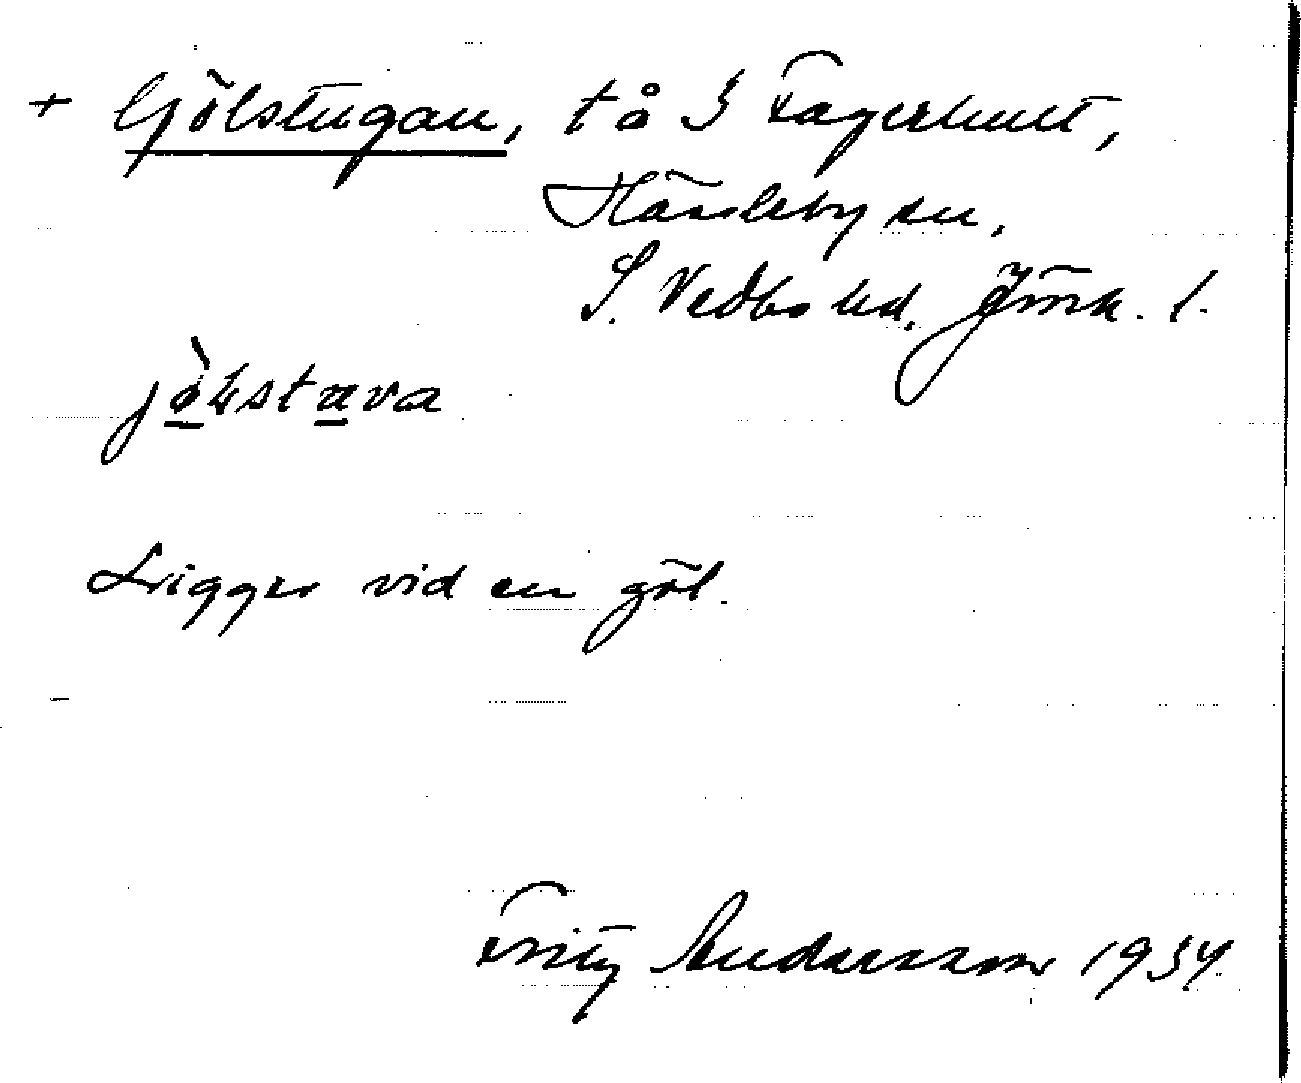 + Gjölstugan, t å S Fagerhult,
Hässleby sn,
S. Vedbo hd, Jönk. l.
Ligger vid en göl.
Fritz Andersson 1934